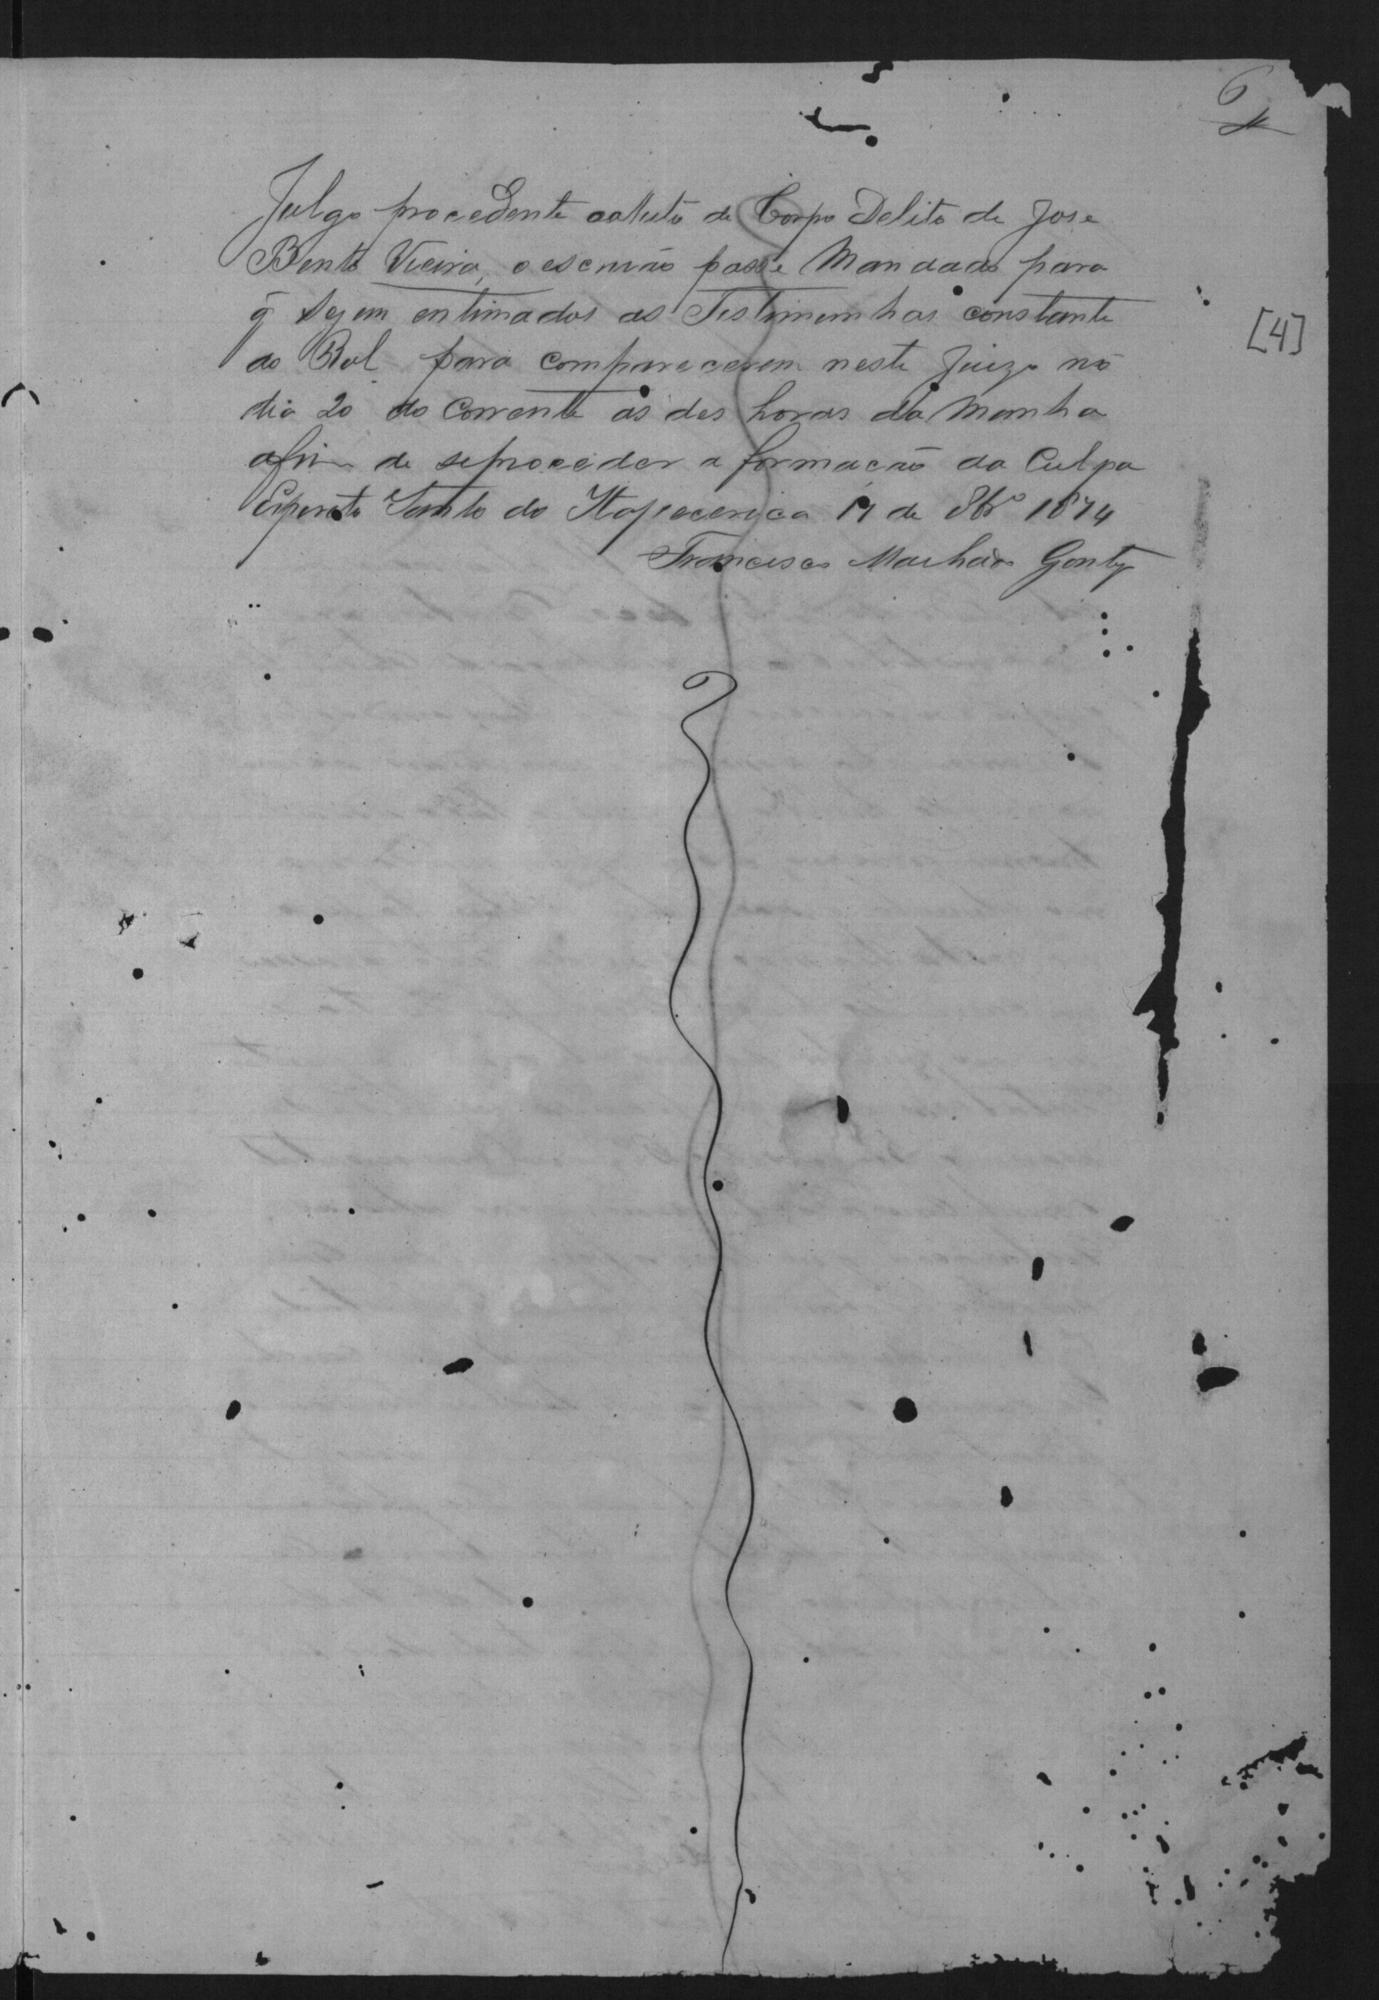 6
Julgo procedente o Auto de Corpo Delito de Jose
Bento Vieira, o escrivão passe Mandado para
q̃ sejem entimados as Testimunhas constante
do Rol para comparecerem neste Juizo no
dia 20 do Corrente as des horas da Manha
afim de seproceder a formacão da Culpa
Esperito Santo do Itapecerica 17 de 8bro 1874
Francisco Machado Gontijo
[4]